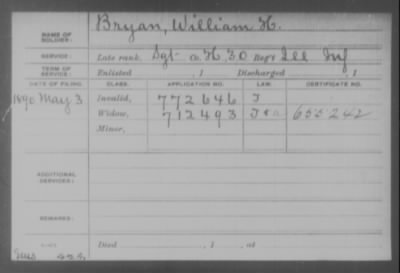 NAME OF SOLDIER: Bryan, William H.
SERVICE: Late rank, Sgt Co. H, 30 Reg't Ill Inf
TERM OF SERVICE: Enlisted , 1 Discharged , 1
DATE OF FILING. CLASS. APPLICATION NO. LAW. CERTIFICATE NO.
1890 May 3 Invalid, 772646 J
Widow, 712493 655242
Minor,
ADDITIONAL SERVICES:
REMARKS:
Died , 1 , at